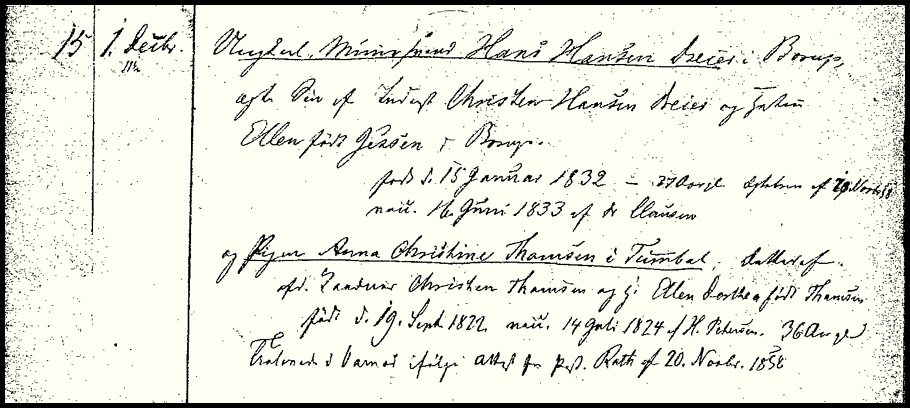 15 1. Decbr. Ungkarl, Hans Hansen Dreier i Borup,
ægte Søn af Indsst Christen Hansen Dreier og Hustru
Ellen født Jessen i Borup.
født d. 15 Januar 1832 — af 19 Novbr
nau. 16. Juni 1833 af Dr Clausen
og Pigen Anna Christine Thomsen i Tumbøl, Datter af
afd. Christen Thomsen og H. Ellen Dorthea født Thomsen
født d. 19. Sept 1822. nau. 14 Juli 1824 af H. Petersen. 36 Aar gl.
Trolovede i Varnæs ifølge Attest fra Past. Rath af 20. Novbr. 1858